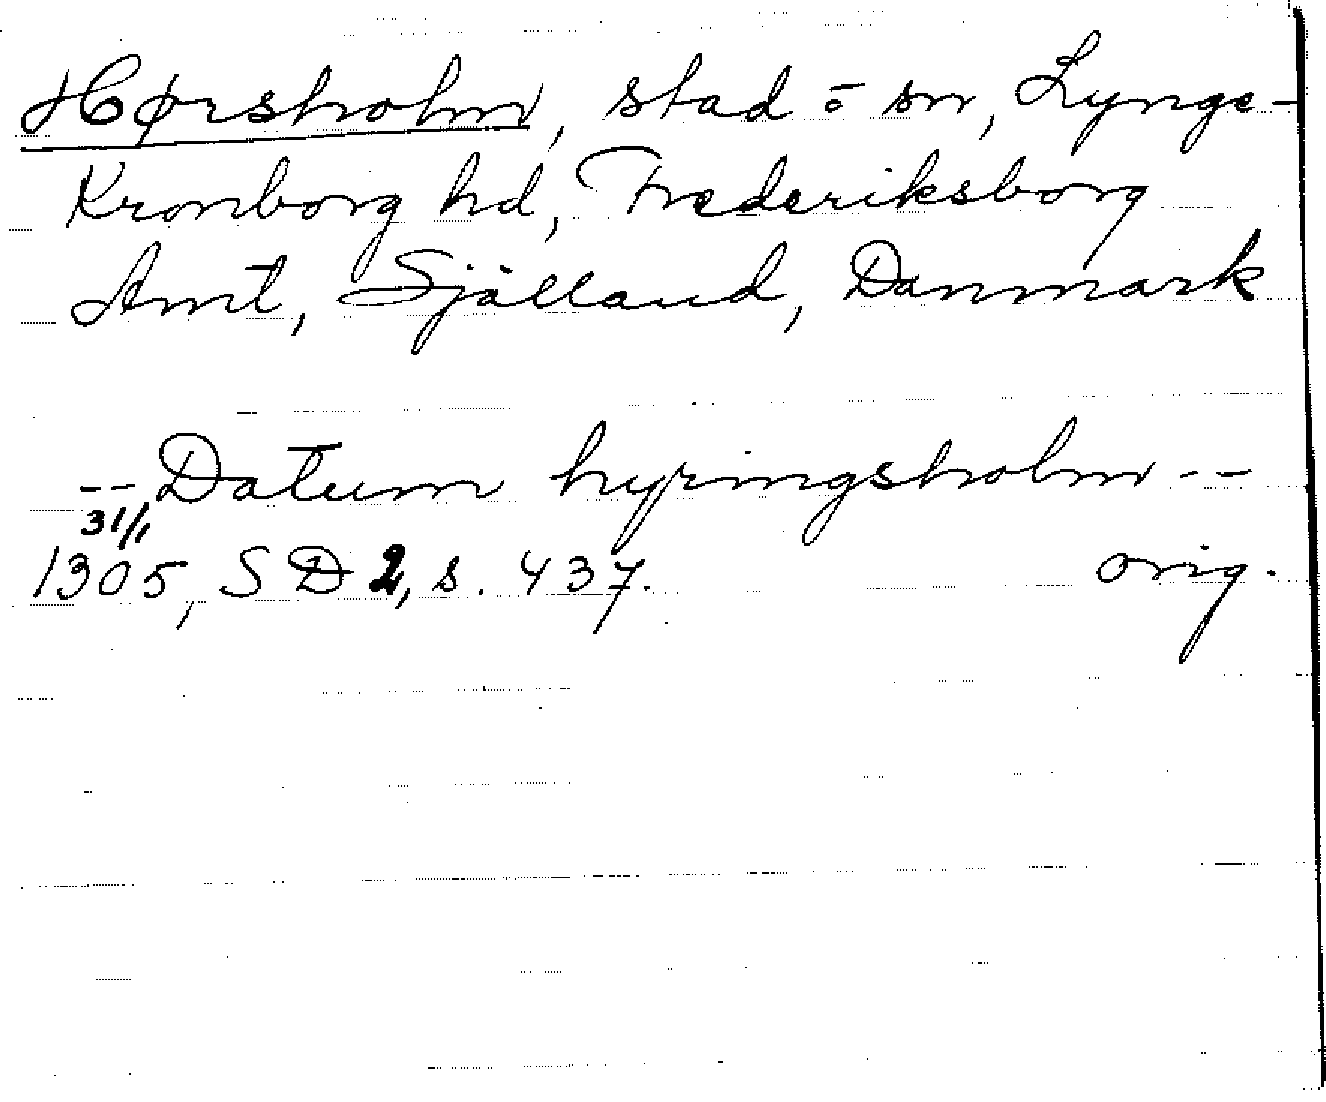 Hørsholm, stad ō sn, Lynge-
Kronborg hd, Frederiksborg
Amt, Själland, Danmark
-- Datum hyringsholm --
31/1
1305, SD 2, s. 437. orig.